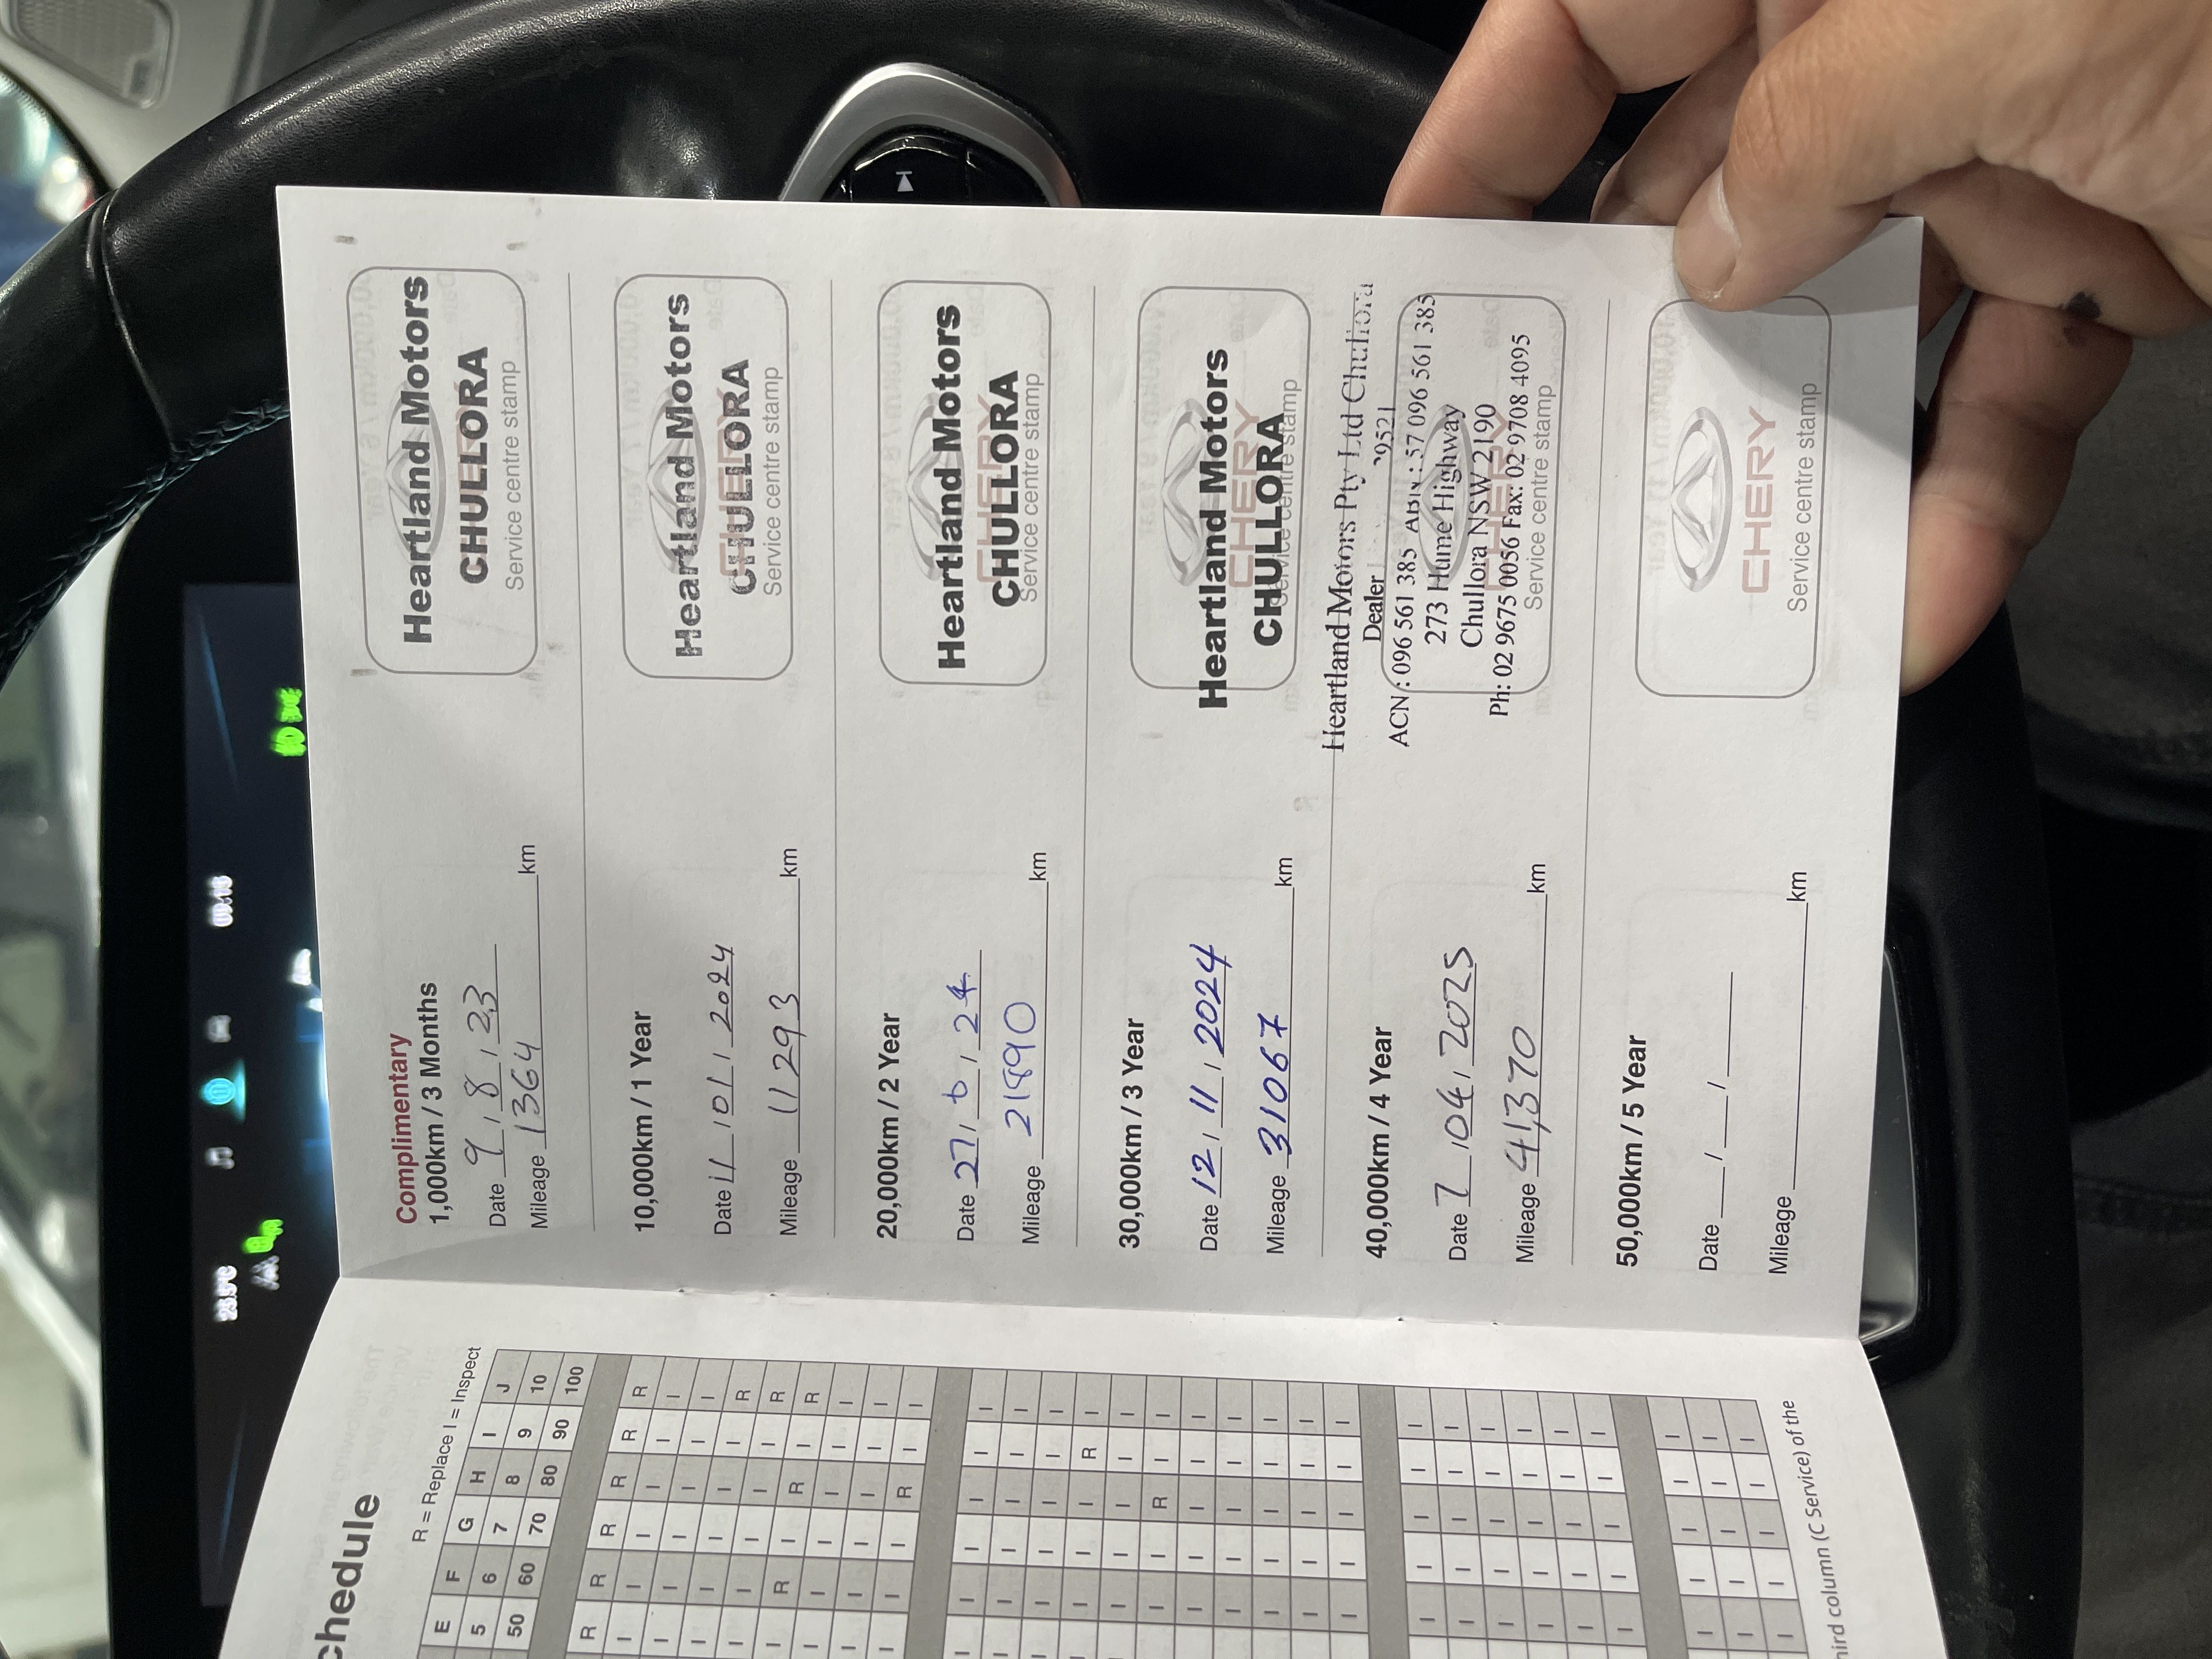 chedule
R = Replace I = Inspect
E F G H I J
5 6 7 8 9 10
50 60 70 80 90 100
R R R R R R
I I I I I I
I I I I I I
I I I I I R
I R I R I R
I I I I I R
I I I I I I
I I I R I I
hird column (C Service) of the
Complimentary
1,000km / 3 Months
Date 9 / 8 / 23
Mileage 1364 km
Heartland Motors
CHULLORA
Service centre stamp
10,000km / 1 Year
Date 11 / 01 / 2024
Mileage 11293 km
Heartland Motors
CHULLORA
CHERY
Service centre stamp
20,000km / 2 Year
Date 27 / 6 / 24
Mileage 21890 km
Heartland Motors
CHULLORA
CHERY
Service centre stamp
30,000km / 3 Year
Date 12 / 11 / 2024
Mileage 31067 km
Heartland Motors
CHERY
CHULLORA
Service centre stamp
40,000km / 4 Year
Date 7 / 04 / 2025
Mileage 41,370 km
Heartland Motors Pty Ltd Chullora
Dealer
ACN : 096 561 385 ABN : 57 096 561 385
273 Hume Highway
Chullora NSW 2190
Ph: 02 9675 0056 Fax: 02 9708 4095
Service centre stamp
50,000km / 5 Year
Date / /
Mileage km
CHERY
Service centre stamp